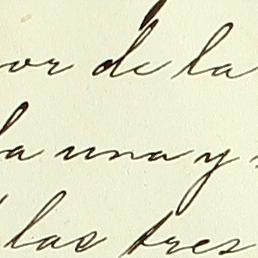 or de la
la una y
las tres